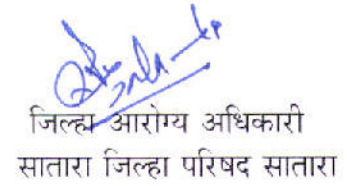 जिल्हा आरोग्य अधिकारी
सातारा जिल्हा परिषद सातारा